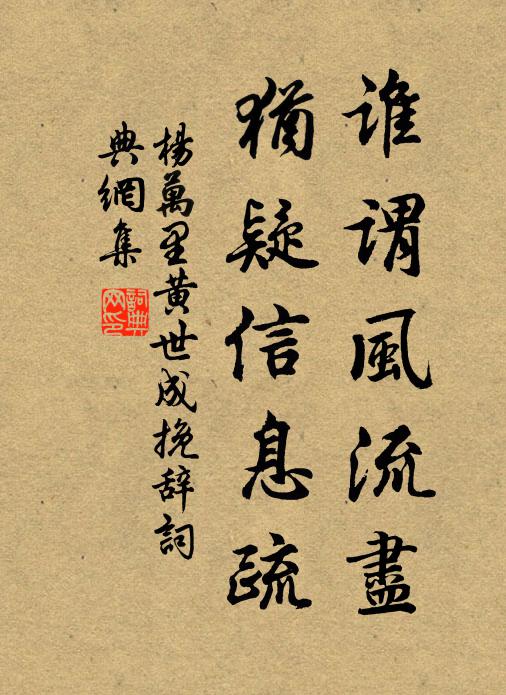 誰謂風流盡
猶疑信息疏
楊萬里黄世成挽辞詞
典網集
詞典
网印